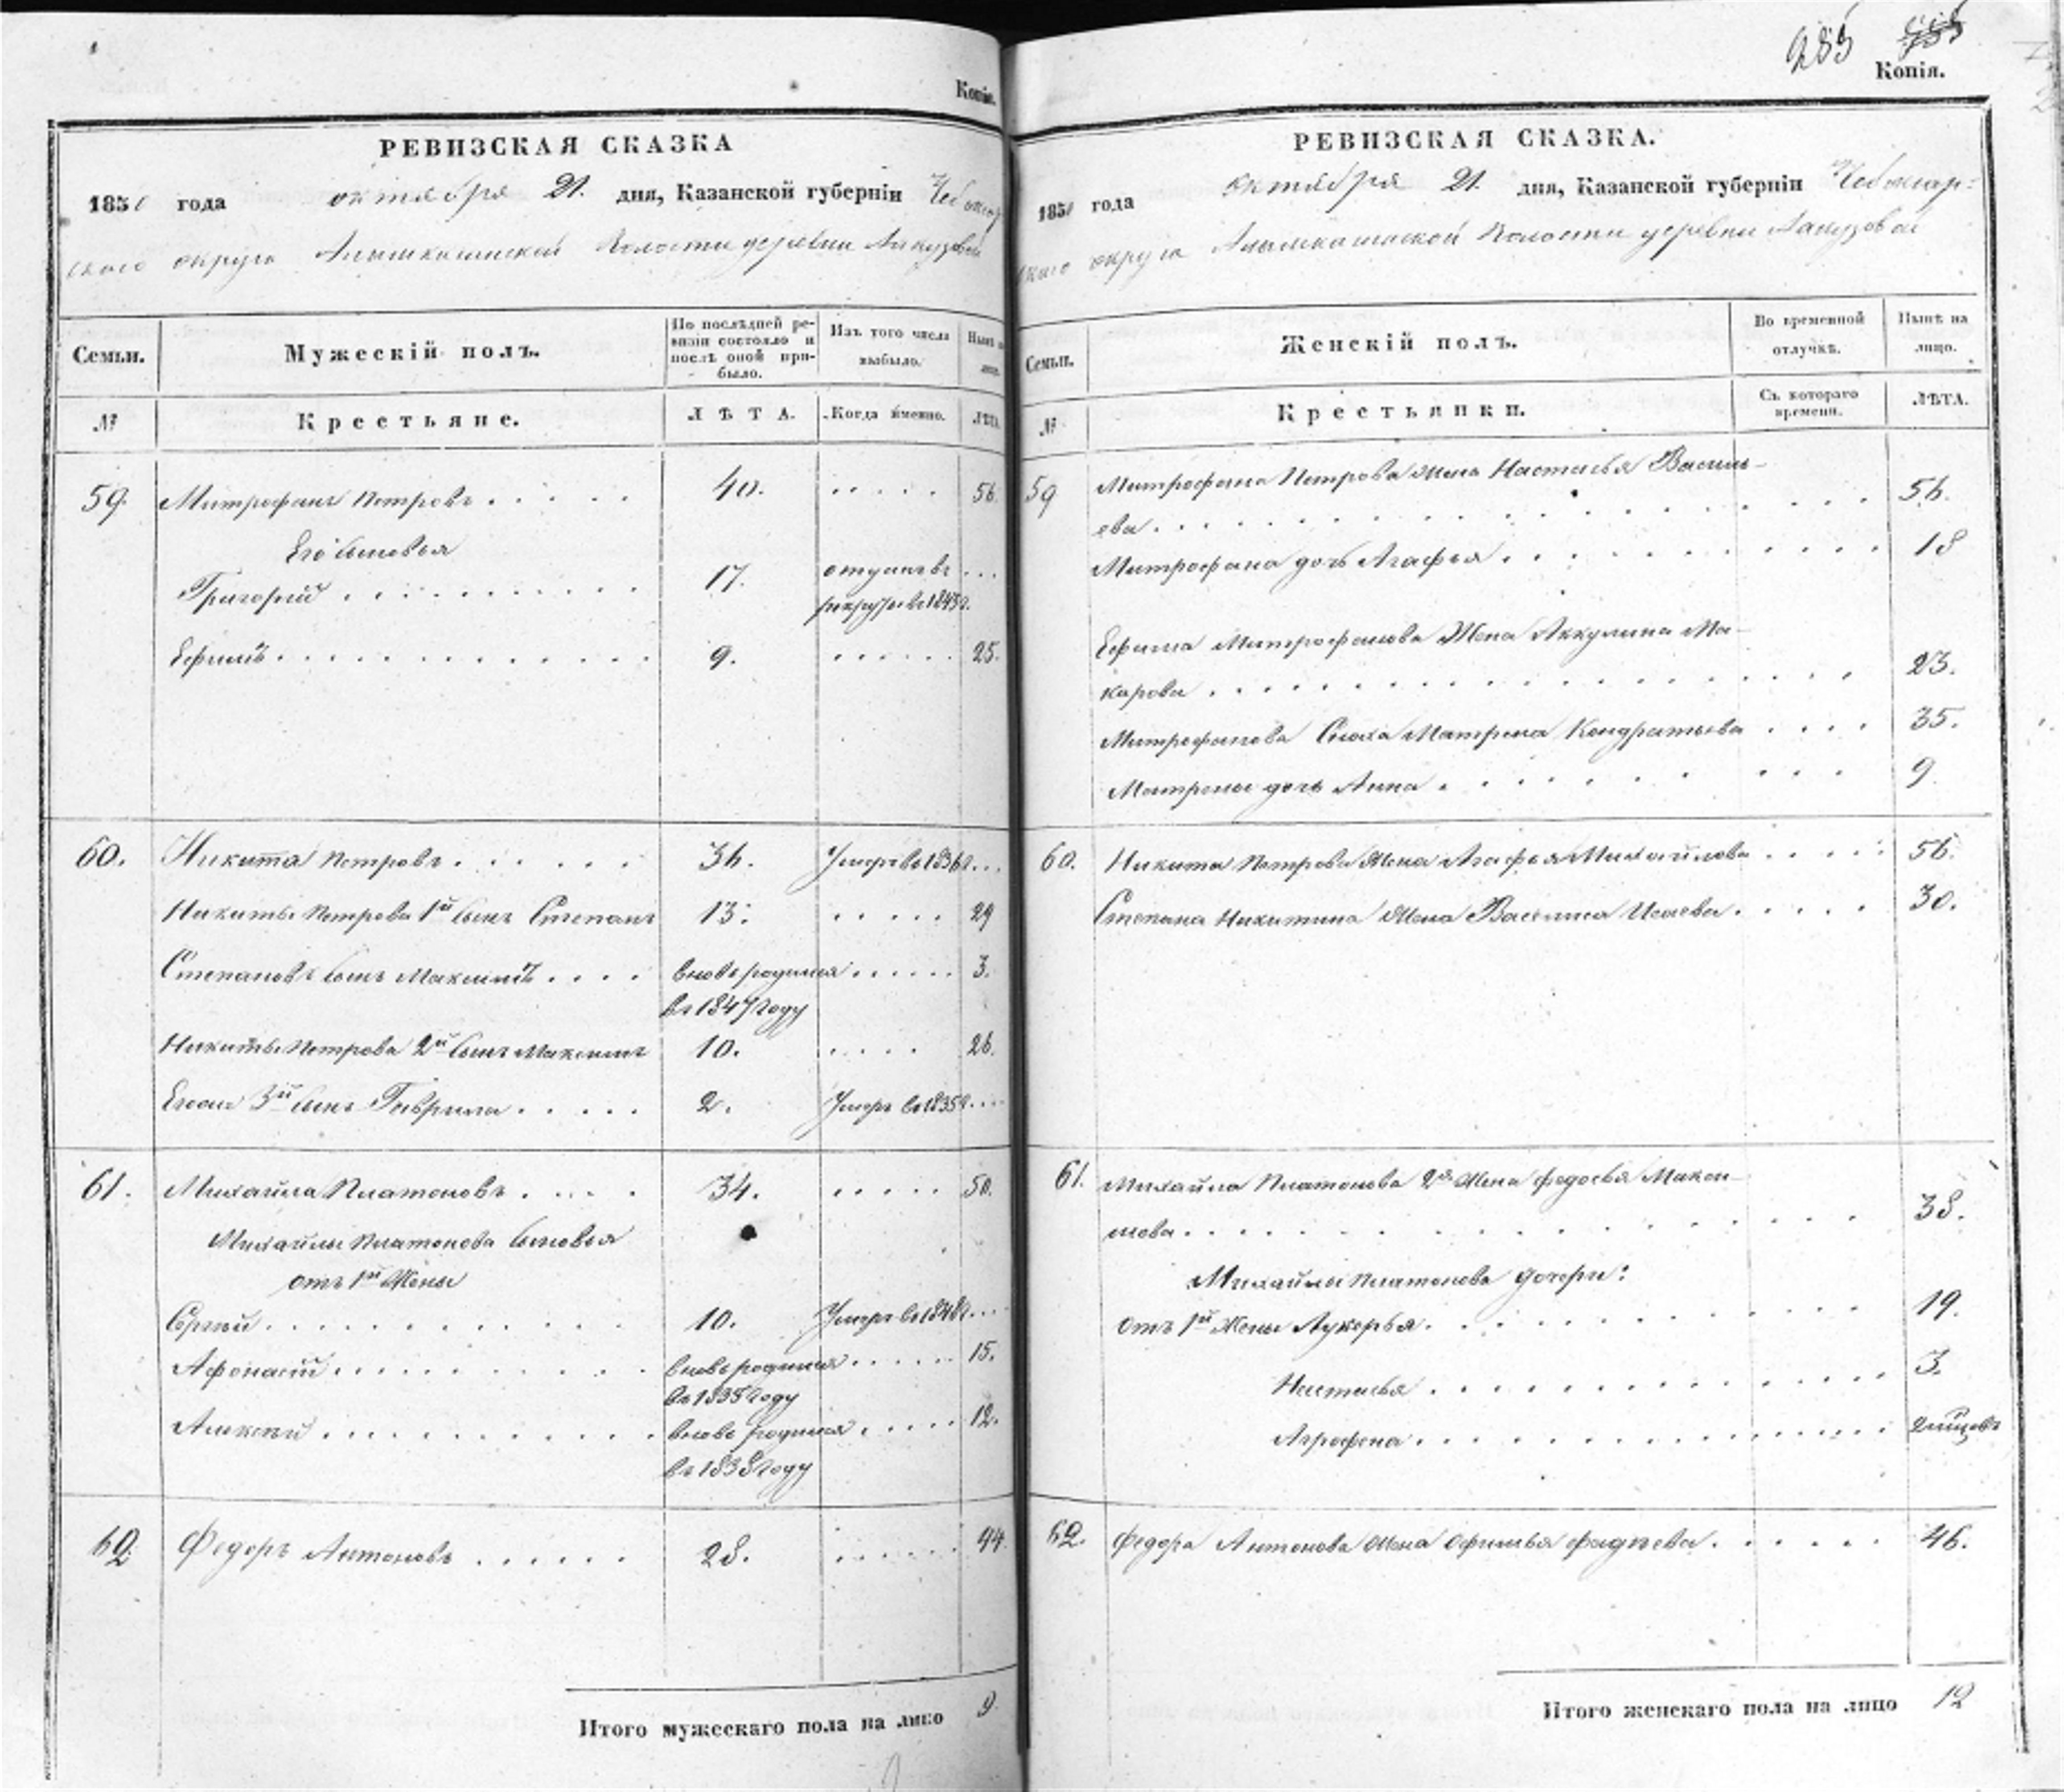 Копія.
РЕВИЗСКАЯ СКАЗКА
1850 года октября 21. дня, Казанской губерніи Чебоксар
скаго округа Алымкасинской Волости деревни
Семьи.
Мужескій полъ.
По послѣдней ре-
визіи состояло и
послѣ оной при-
было.
Изъ того числа
выбыло.
Нынѣ на
лицо.
№
Крестьяне.
ЛѢТА.
Когда именно.
ЛѢТА.
59. Митрофанъ Петровъ . . . . . 40. . . . . . 56.
Его сыновья
Григорій . . . . . . . . . . 17. отданъ въ . . .
рекруты въ 1843 г.
Ефимъ . . . . . . . . . . . 9. . . . . . . 25.
60. Никита Петровъ . . . . . . 36. Умеръ въ 1836 г. . . .
Никиты Петрова 1й сынъ Степанъ 13. . . . . . 29
Степановъ сынъ Максимъ . . . . вновь родился . . . . . . 3.
въ 1847 году
Никиты Петрова 2й сынъ Максимъ 10. . . . . 26.
Егоже 3й сынъ Гаврила . . . . . 2. Умеръ въ 1835 г. . . .
61. Михайла Платоновъ . . . . 34. . . . . . 50.
Михайлы Платонова сыновья
отъ 1й Жены
Сергѣй . . . . . . . . . . . 10. Умеръ въ 1848 г. . . .
Афонасій . . . . . . . . . . . вновь родился . . . . . . 15.
въ 1835 году
Алексѣй . . . . . . . . . . . вновь родился . . . . . 12.
въ 1838 году
62. Федоръ Антоновъ . . . . . . 28. . . . . . . 44.
Итого мужескаго пола на лицо 9.
285
Копія.
РЕВИЗСКАЯ СКАЗКА.
1850 года октября 21. дня, Казанской губерніи Чебоксар-
скаго округа Алымкасинской Волости деревни
Семьи.
Женскій полъ.
Во временной
отлучкѣ.
Нынѣ на
лицо.
№
Крестьянки.
Съ котораго
времени.
ЛѢТА.
59 Митрофана Петрова жена Настасья Василь-
ева . . . . . . . . . . . . . . . 56.
Митрофана дочь Агафья . . . . . . . . . . 18
Ефима Митрофанова Жена Аккулина Ма-
карова . . . . . . . . . . . . . . 23.
Митрофанова Сноха Матрена Кондратьева . . . . 35.
Матрены дочь Анна . . . . . . . . . 9
60. Никита Петрова Жена Агафья Михайлова . . . . . 56.
Степана Никитина Жена Василиса Исаева . . . . . 30.
61. Михайла Платонова 2я Жена Федосья Макси-
мова . . . . . . . . . . . . . . 38.
Михайлы Платонова дочери:
отъ 1й Жены Лукерья . . . . . . . . . . 19.
Настасья . . . . . . . . . . . . . 3.
Агрофена . . . . . . . . . . . . .
62. Федора Антонова Жена Офимья Фадѣева . . . . . . 46.
Итого женскаго пола на лицо 12